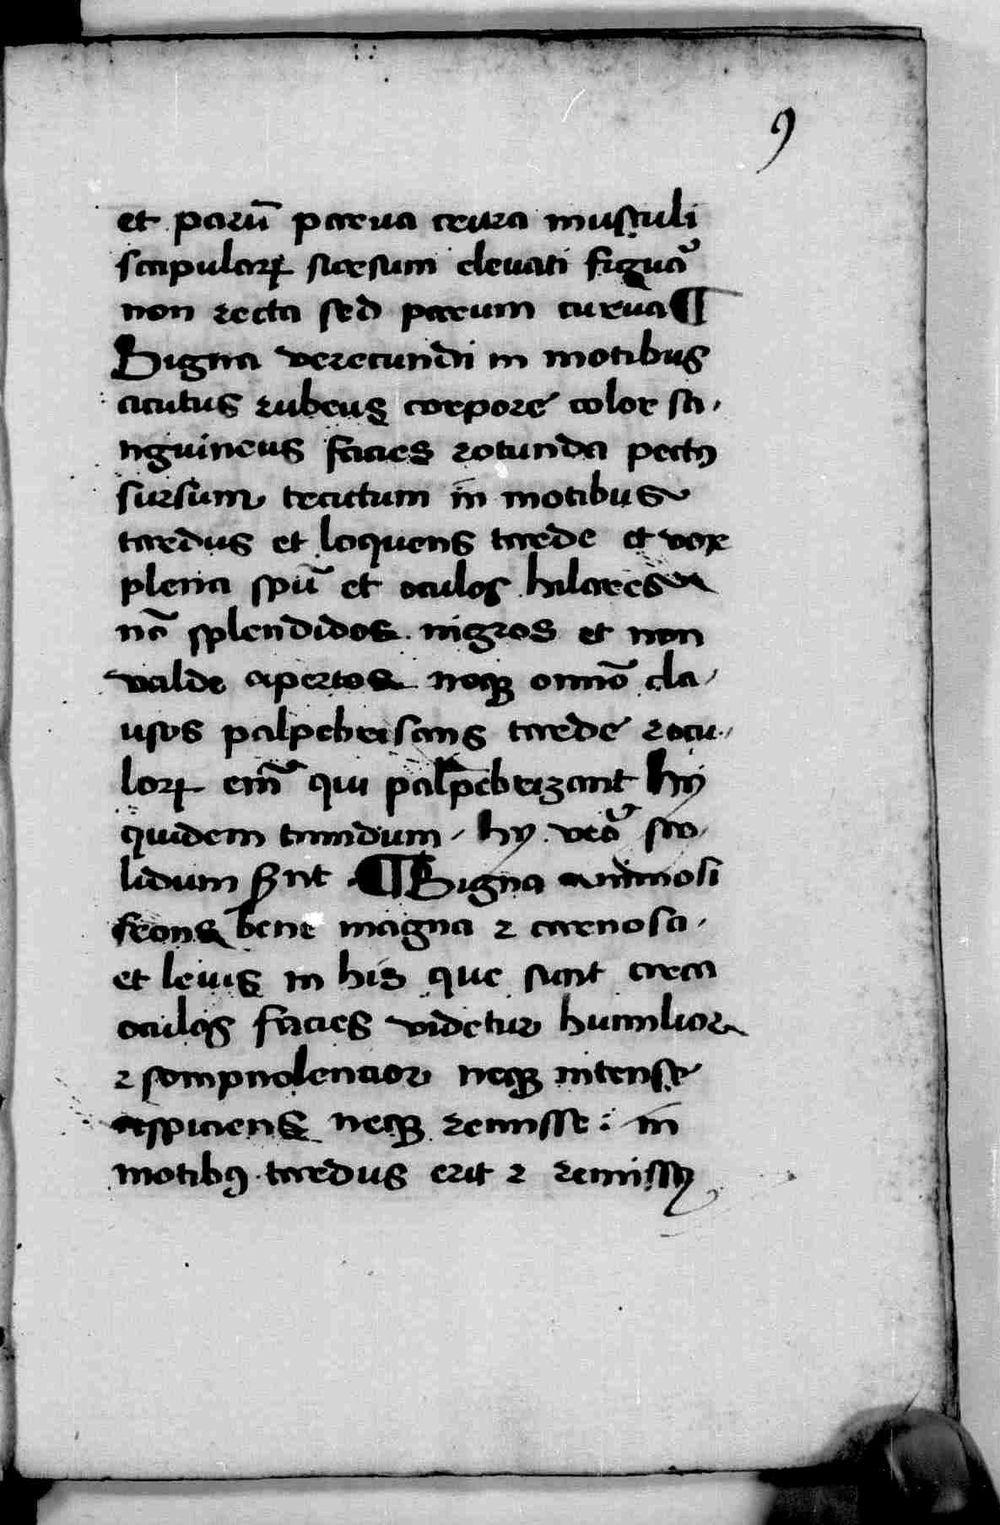 9
et parū parua crura musculi
scapularꝝ sursum eleuati figuaʾ
non recta sed parum curua ¶
Signa verecundi in motibus
acutus rubeus corpore color sa-
nguineus facies rotunda pectꝰ
sursum tractum in motibus
tardus et loquens tarde et vox
plena spū et oculos hilares
nō splendidos nigros et non
valde apertos neqꝫ omīo cla-
usos palpebrisans tarde ⁊ ocu-
lorꝝ em̄ qui palpebrizant hij
quidem timidum / hij veō sto-
lidum sūnt ¶ Signa animosi
frons bene magna ⁊ carnosa
et leuis in his que sunt circa
oculos facies videtur humilior
⁊ sompnolencior neqꝫ intense
aspiciens neqꝫ remisse : in
motibꝰ tardus erit ⁊ remissꝰ